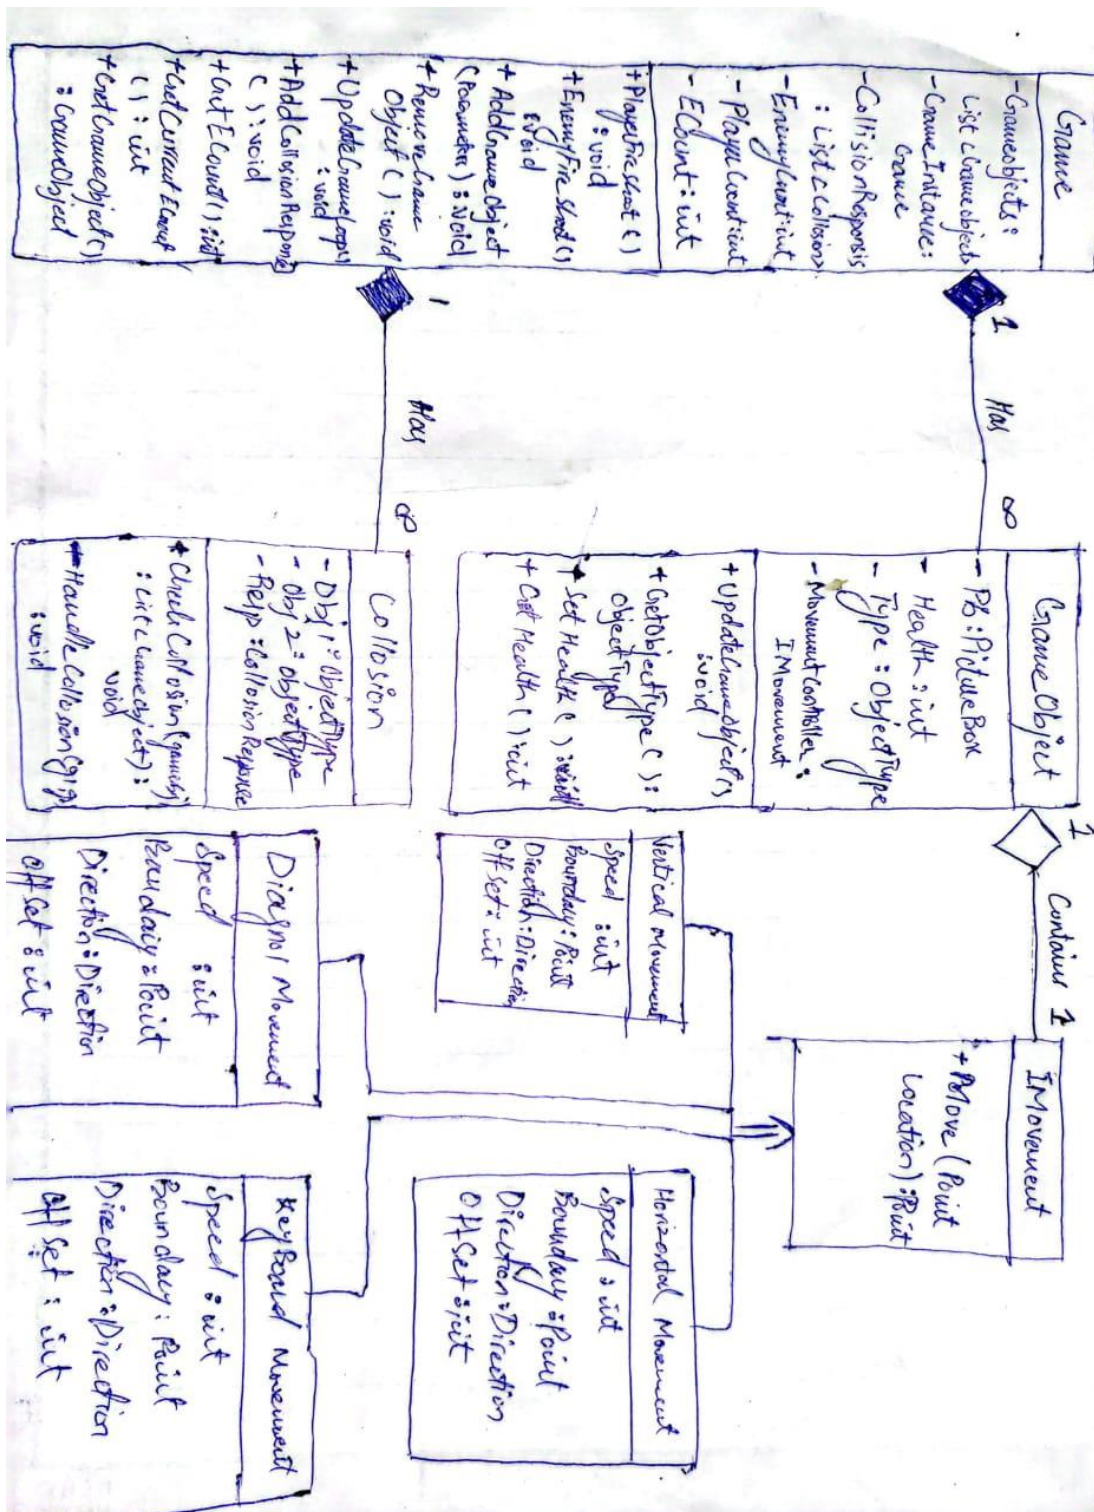 Game
- Gameobjects :
List < Gameobject>
- Game Instance :
Game
- Collision Responsis
: List < Collision>
- EnemyCount : int
- PlayerCount : int
- ECount : int
+ PlayerFire shoot ( )
: void
+ EnemyFire Shoot ( )
: void
+ AddGameObject
(Parameter) : void
+ Remove Game
Object ( ) : void
+ UpdateGameLoop()
: void
+ AddCollisionResponse
( ) : void
+ GetECount( ) : int
+ GetCurrentECount
( ) : int
+ GetGameObject( )
: GameObject
1
Has
∞
1
Has
∞
GameObject
- PB : PictureBox
- Health : int
- Type : ObjectType
- MovementController :
IMovement
+ UpdateGameobject()
: void
+ GetObjectType ( ) :
ObjectType
+ Set Health ( ) : void
+ Get Health ( ) : int
Collosion
- Obj1 : ObjectType
- Obj 2 : ObjectType
- Resp : CollisionResponse
+ CheckCollosion (
: List < Gameobject> ) :
void
+ HandleCollosion (
: void
1
Contains 1
IMovement
+ Move (Point
Location) : Point
Vertical Movement
Speed : int
Boundary : Point
Direction : Direction
Off Set : int
Horizontal Movement
Speed : int
Boundary : Point
Direction : Direction
Off Set : int
Diagnol Movement
Speed : int
Boundary : Point
Direction : Direction
Off Set : int
KeyBoard Movement
Speed : int
Boundary : Point
Direction : Direction
Off Set : int